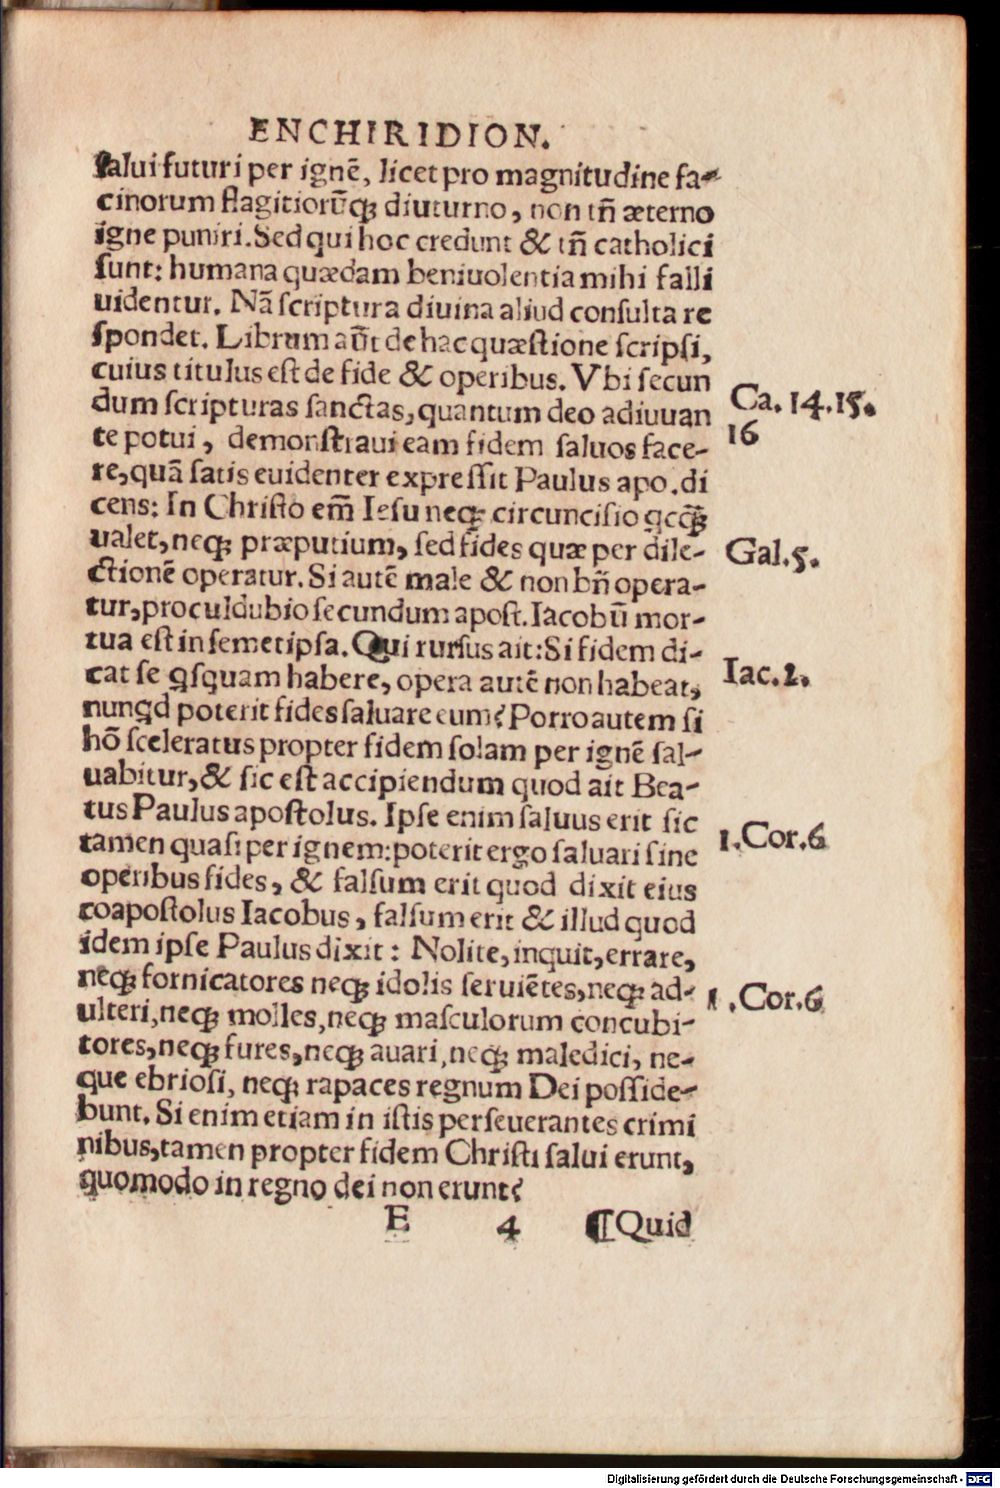 ENCHIRIDION.
ſalui futuri per ignē, licet pro magnitudine fa-
cinorum flagitiorūq; diuturno, non tñ æterno
igne puniri. Sed qui hoc credunt & tñ catholici
ſunt: humana quædam beniuolentia mihi falli
uidentur. Nã ſcriptura diuina aliud conſulta re
ſpondet. Librum aūt de hac quæſtione ſcripſi,
cuius titulus eſt de fide & operibus. Vbi ſecun
dum ſcripturas ſanctas, quantum deo adiuuan
te potui, demonſtraui eam fidem ſaluos face-
re, quã ſatis euidenter expreſſit Paulus apo. di
cens: In Chriſto em̄ Ieſu neq; circunciſio qcq̃;
ualet, neq; præputium, ſed fides quæ per dile-
ctionē operatur. Si autē male & non bñ opera-
tur, proculdubio ſecundum apoſt. Iacobū mor-
tua eſt in ſemetipſa. Qui rurſus ait: Si fidem di-
cat ſe qſquam habere, opera autē non habeat,
nunqd poterit fides ſaluare eum? Porro autem ſi
hõ ſceleratus propter fidem ſolam per ignē ſal-
uabitur, & ſic eſt accipiendum quod ait Bea-
tus Paulus apoſtolus. Ipſe enim ſaluus erit ſic
tamen quaſi per ignem: poterit ergo ſaluari ſine
operibus fides, & falſum erit quod dixit eius
coapoſtolus Iacobus, falſum erit & illud quod
idem ipſe Paulus dixit: Nolite, inquit, errare,
neq; fornicatores neq; idolis ſeruiētes, neq; ad-
ulteri, neq; molles, neq; maſculorum concubi-
tores, neq; fures, neq; auari, neq; maledici, ne-
que ebrioſi, neq; rapaces regnum Dei poſſide-
bunt. Si enim etiam in iſtis perſeuerantes crimi
nibus, tamen propter fidem Chriſti ſalui erunt,
quomodo in regno dei non erunt?
E 4 ¶Quid
Ca. 14.15.
16
Gal.5.
Iac.2.
1.Cor.6
1.Cor.6
Digitalisierung gefördert durch die Deutsche Forschungsgemeinschaft - DFG